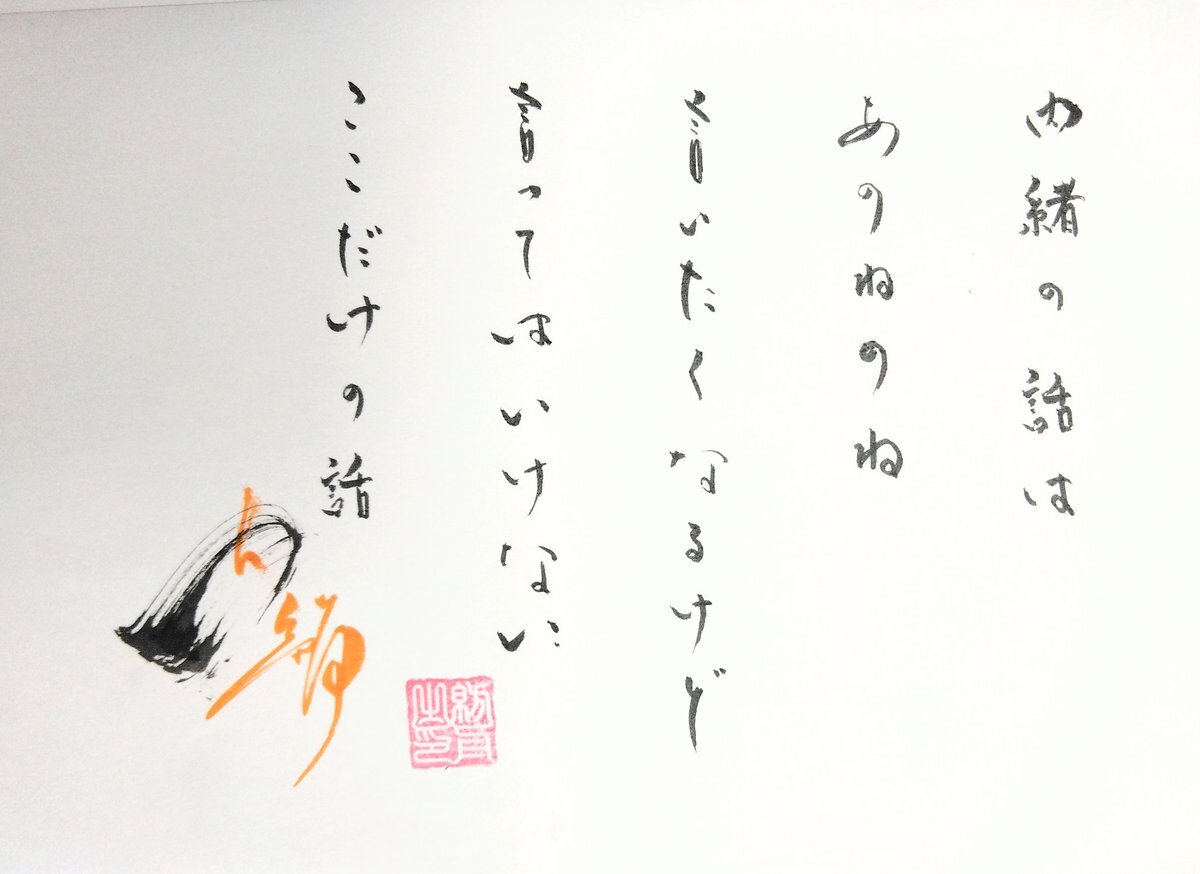 内緒の話は
あのねのね
言いたくなるけど
言ってはいけない
ここだけの話